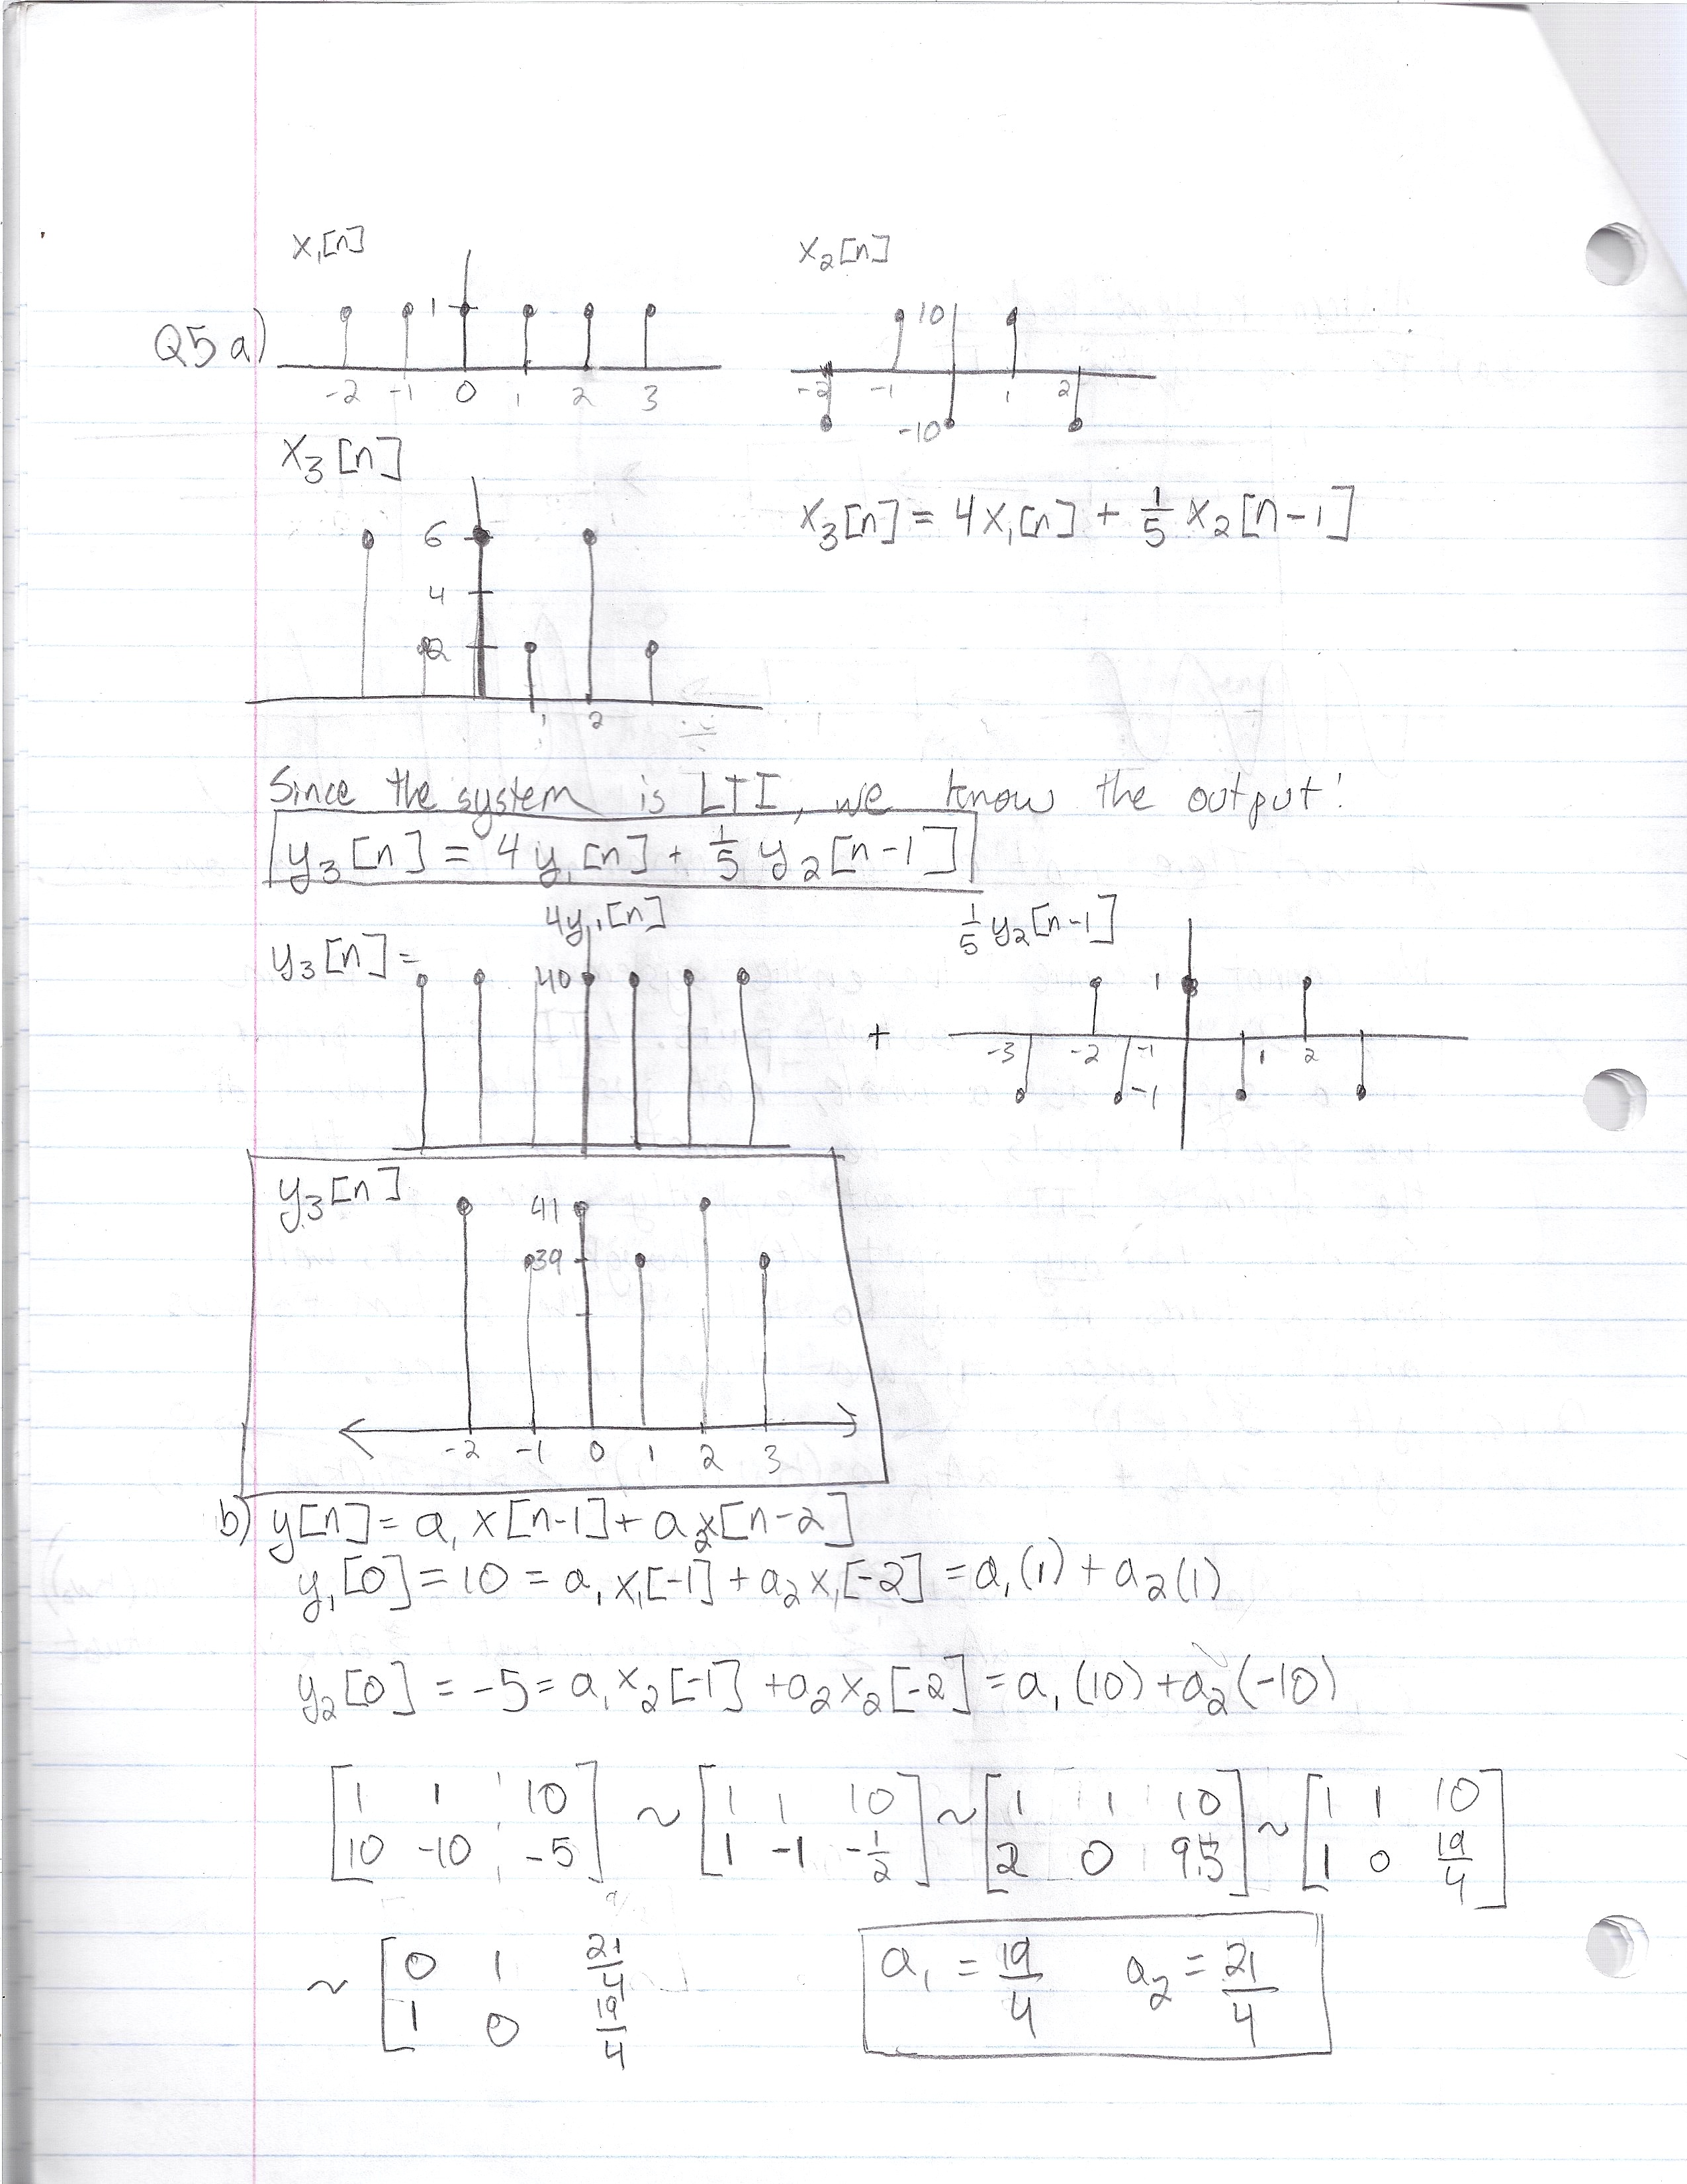 x₁[n]
x₂[n]
Q5 a)
1
-2 -1 0 1 2 3
10
-2 -1 1 2
-10
x₃[n]
x₃[n] = 4x₁[n] + 1/5 x₂[n-1]
6
4
2
1 2
Since the system is LTI, we know the output:
y₃[n] = 4y₁[n] + 1/5 y₂[n-1]
4y₁[n]
1/5 y₂[n-1]
y₃[n] =
40
+
1
-3 -2 -1 1 2
-1
y₃[n]
41
39
-2 -1 0 1 2 3
b) y[n] = a₁ x[n-1] + a₂x[n-2]
y₁[0] = 10 = a₁ x₁[-1] + a₂ x₁[-2] = a₁(1) + a₂(1)
y₂[0] = -5 = a₁ x₂[-1] + a₂ x₂[-2] = a₁(10) + a₂(-10)
[1 1 10; 10 -10 -5] ~ [1 1 10; 1 -1 -1/2] ~ [1 1 10; 2 0 9.5] ~ [1 1 10; 1 0 19/4]
~ [0 1 21/4; 1 0 19/4]
a₁ = 19/4 a₂ = 21/4